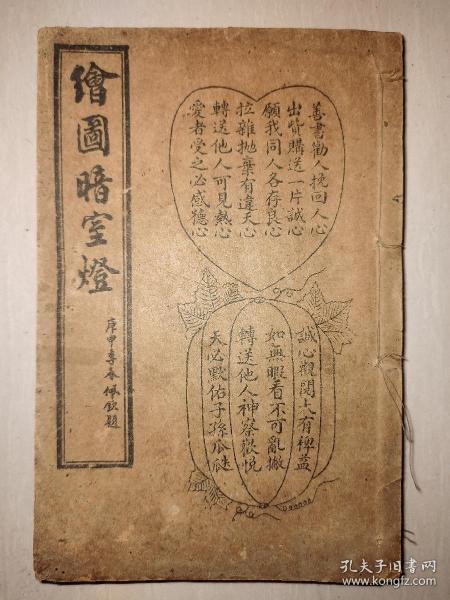 繪圖暗室燈
庚申季春佩欽題
善書勸人挽回人心
出貲購送一片誠心
願我同人各存良心
拉雜抛棄有違天心
轉送他人可見熱心
愛者受之必感德心
誠心觀閱大有裨益
如無暇看不可亂擲
轉送他人神祭歡悅
天必默佑子孫瓜瓞
孔夫子旧书网
www.kongfz.com